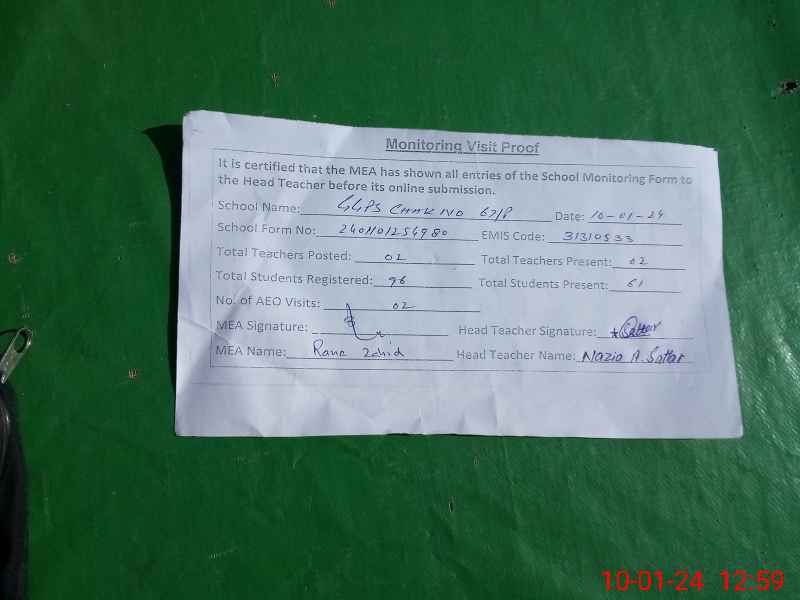 Monitoring Visit Proof
It is certified that the MEA has shown all entries of the School Monitoring Form to
the Head Teacher before its online submission.
School Name: GGPS CHAK NO 67/P Date: 10-01-24
School Form No: EMIS Code: 31310533
Total Teachers Posted: 02 Total Teachers Present: 02
Total Students Registered: 96 Total Students Present: 61
No. of AEO Visits: 02
MEA Signature: Head Teacher Signature: Sattar
MEA Name: Rana Zahid Head Teacher Name: Nazia A. Sattar
10-01-24 12:59